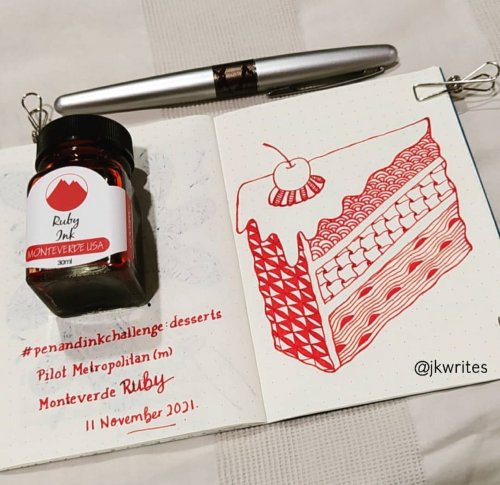 Ruby
Ink
MONTEVERDE USA
30ml
#penandinkchallenge:desserts
Pilot Metropolitan (m)
Monteverde Ruby
11 November 2021.
@jkwrites